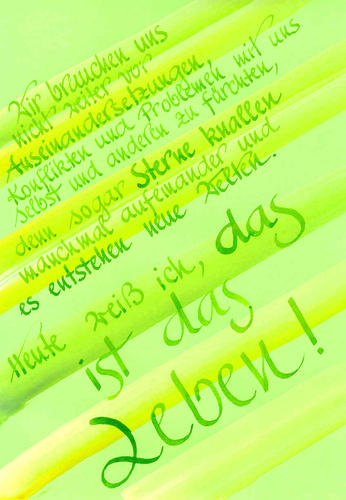 Wir brauchen uns
nicht weiter vor
Auseinandersetzungen,
Konflikten und Problemen mit uns
selbst und anderen zu fürchten,
denn sogar Sterne knallen
manchmal aufeinander und
es entstehen neue Welten.
Heute weiß ich, das
ist das
Leben!